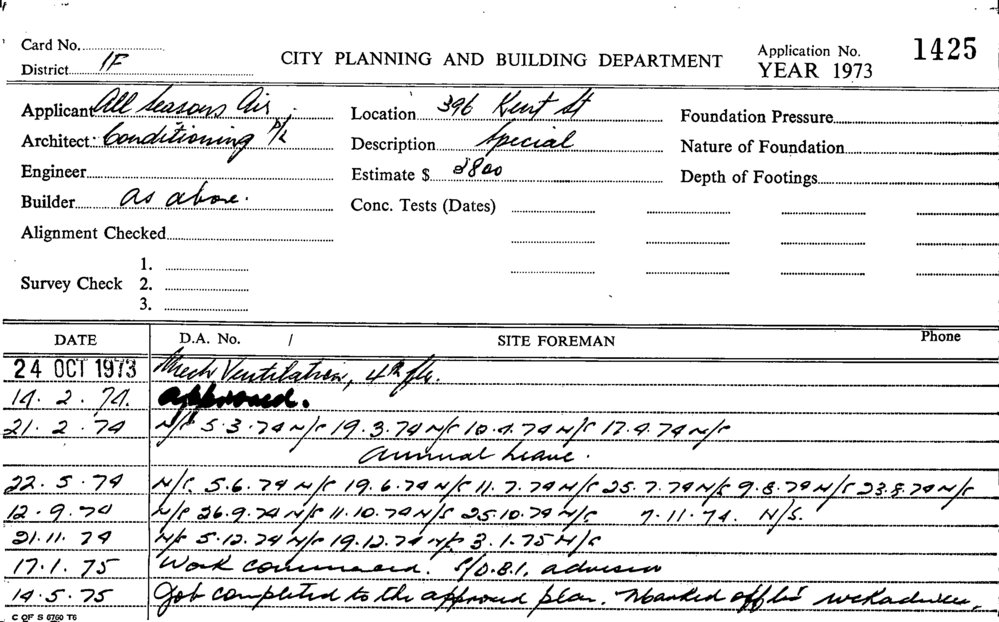 Card No.
District 1F
CITY PLANNING AND BUILDING DEPARTMENT
Application No.
YEAR 1973
1425
Applicant All Seasons Air
Architect Conditioning P/L
Engineer
Builder as above.
Alignment Checked
Survey Check 1.
2.
3.
Location 396 Kent St
Description Special
Estimate $ 3800
Conc. Tests (Dates)
Foundation Pressure
Nature of Foundation
Depth of Footings
DATE D.A. No. / SITE FOREMAN Phone
24 OCT 1973 Mech Ventilation, 4th flr.
14. 2. 74. approved.
21. 2. 74 N/S 5.3.74 N/S 19.3.74 N/S 10.4.74 N/S 17.4.74 N/S
Annual Leave.
22. 5. 74 N/S. 5.6.74 N/S 19.6.74 N/S 11.7.74 N/S 25.7.74 N/S 9.8.74 N/S 23.8.74 N/S
12. 9. 74 N/S 26.9.74 N/S 11.10.74 N/S 25.10.74 N/S 7.11.74. N/S.
21. 11. 74 N/S 5.12.74 N/S 19.12.74 N/S 3.1.75 N/S
17. 1. 75 Work commenced. S/D.B.I. advised
14. 5. 75 Job completed to the approved plan. Marked off
C OF S 6760 T6